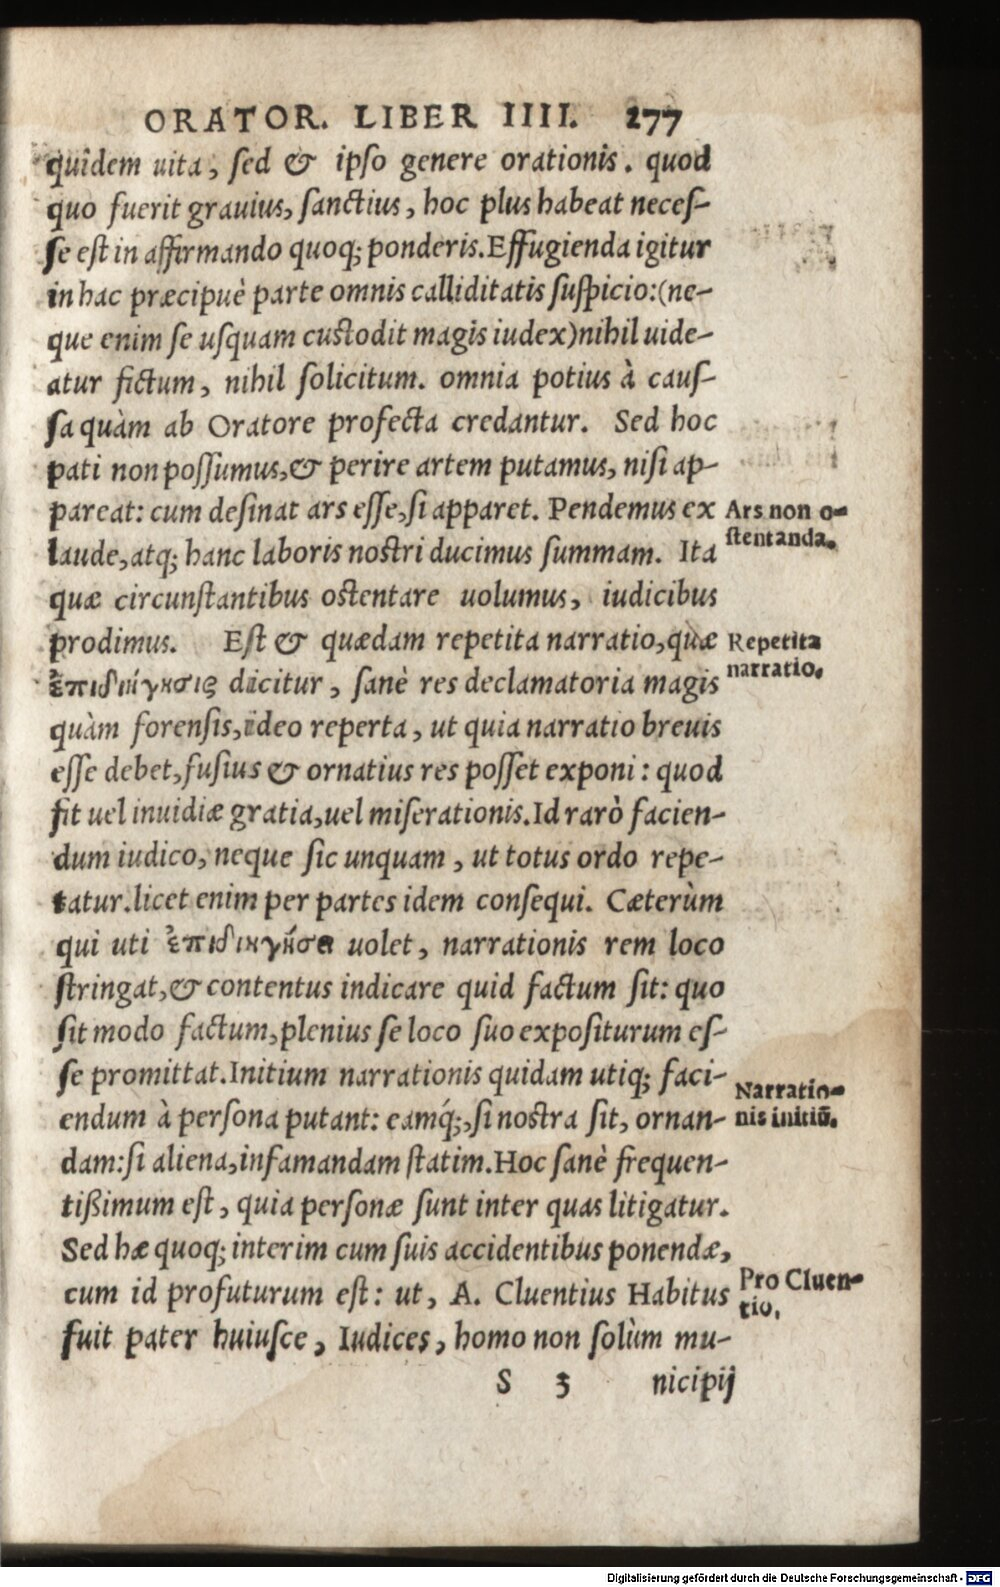 ORATOR. LIBER IIII. 277
quidem uita, sed & ipso genere orationis. quod
quo fuerit grauius, sanctius, hoc plus habeat neces-
se est in affirmando quoq; ponderis. Effugienda igitur
in hac præcipuè parte omnis calliditatis suspicio: (ne-
que enim se usquam custodit magis iudex) nihil uide-
atur fictum, nihil solicitum. omnia potius à caus-
sa quàm ab Oratore profecta credantur. Sed hoc
pati non possumus, & perire artem putamus, nisi ap-
pareat: cum desinat ars esse, si apparet. Pendemus ex
Ars non o-
stentanda.
laude, atq; hanc laboris nostri ducimus summam. Ita
quæ circunstantibus ostentare uolumus, iudicibus
prodimus. Est & quædam repetita narratio, quæ
Repetita
narratio.
ἐπιδιήγησις dicitur, sanè res declamatoria magis
quàm forensis, ideo reperta, ut quia narratio breuis
esse debet, fusius & ornatius res posset exponi: quod
fit uel inuidiæ gratia, uel miserationis. Id rarò facien-
dum iudico, neque sic unquam, ut totus ordo repe-
tatur. licet enim per partes idem consequi. Cæterùm
qui uti ἐπιδιηγήσει uolet, narrationis rem loco
stringat, & contentus indicare quid factum sit: quo
sit modo factum, plenius se loco suo expositurum es-
se promittat. Initium narrationis quidam utiq; faci-
Narratio-
nis initiū.
endum à persona putant: eamq́;, si nostra sit, ornan-
dam: si aliena, infamandam statim. Hoc sanè frequen-
tißimum est, quia personæ sunt inter quas litigatur.
Sed hæ quoq; interim cum suis accidentibus ponendæ,
cum id profuturum est: ut, A. Cluentius Habitus
Pro Cluen-
tio.
fuit pater huiusce, Iudices, homo non solùm mu-
S 3 nicipij
Digitalisierung gefördert durch die Deutsche Forschungsgemeinschaft - DFG